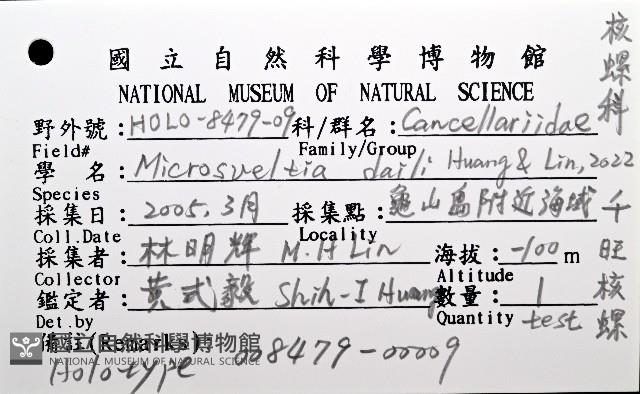 國立自然科學博物館
NATIONAL MUSEUM OF NATURAL SCIENCE
野外號：HOLO-8479-09 科/群名：Cancellariidae
Field# Family/Group
學 名：Microsveltia daili Huang & Lin, 2022
Species
採集日：2005, 3月 採集點：龜山島附近海域
Coll.Date Locality
採集者：林明輝 M.H Lin 海拔：-100 m
Collector Altitude
鑑定者：黃式毅 Shih-I Huang 數量：1
Det.by Quantity test
備註(Remarks)
國立自然科學博物館
NATIONAL MUSEUM OF NATURAL SCIENCE
Holotype 008479-00009
核螺科
千旺核螺